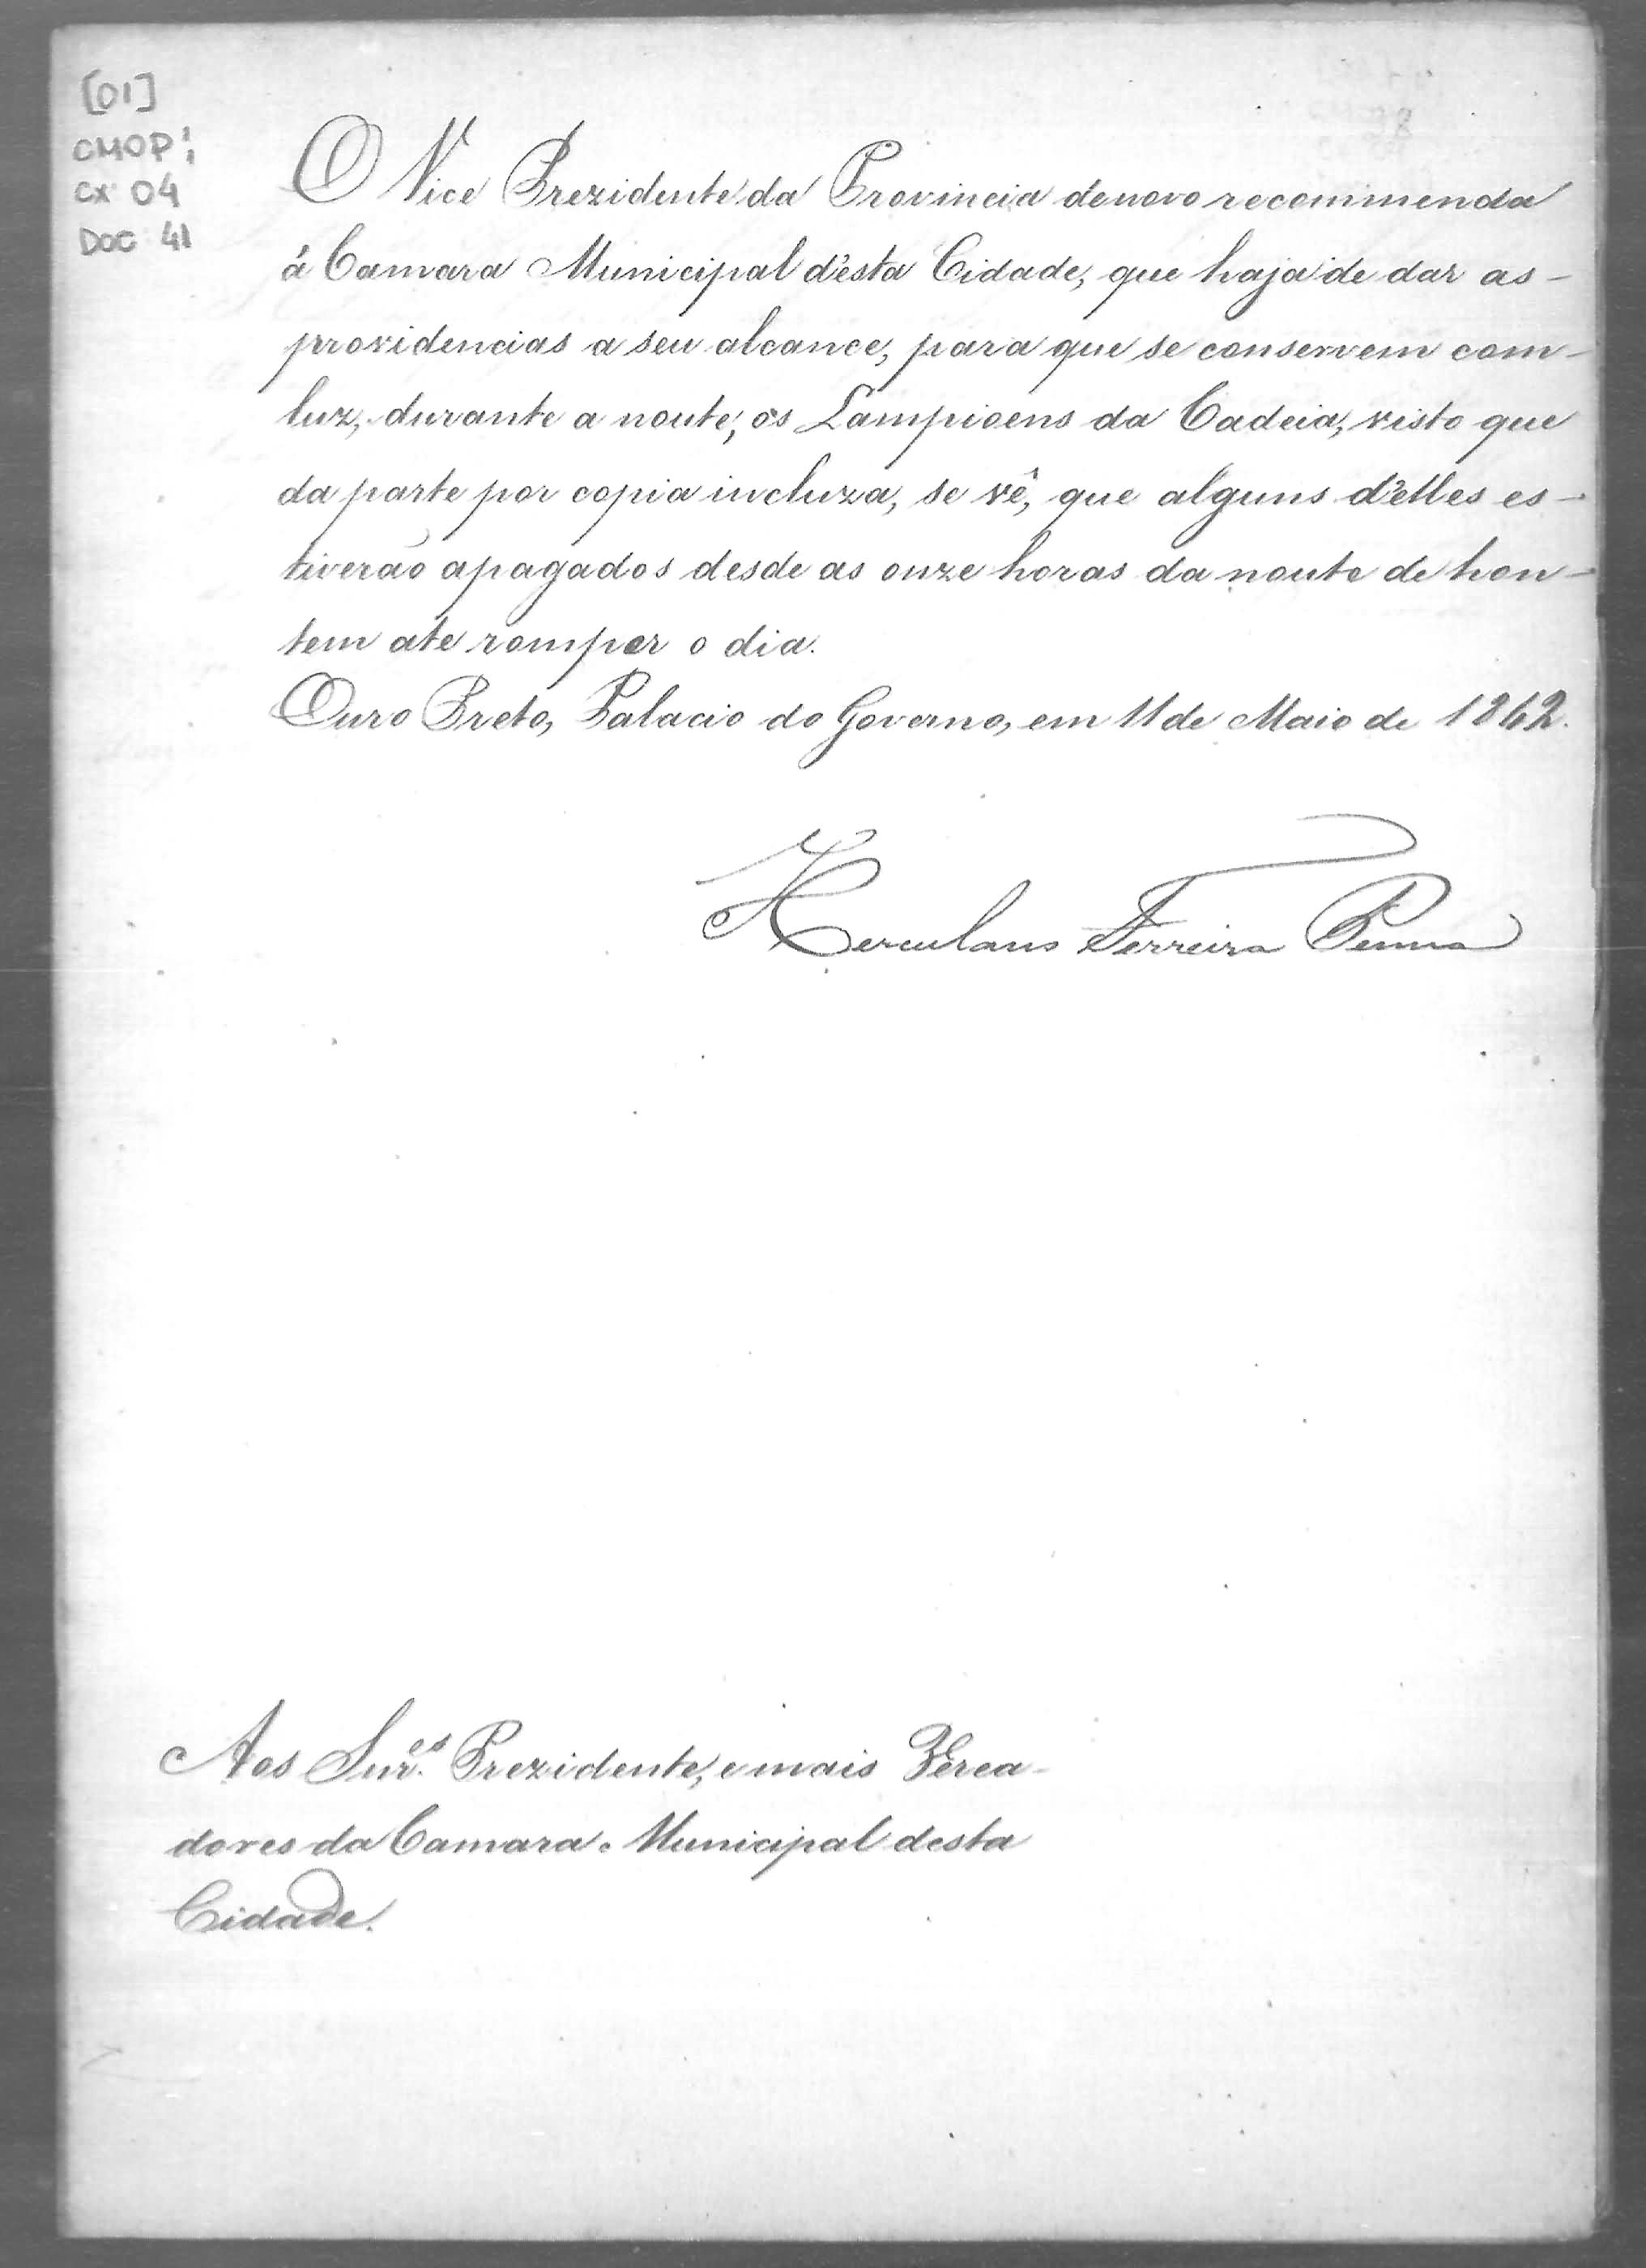 [01]
CMOP;
CX 04
DOC 41
O Vice Prezidente da Provincia denovo recommenda
á Camara Municipal d'esta Cidade, que haja de dar as
providencias a seu alcance, para que se conservem com
luz, durante a noute, os Lampioens da Cadeia, visto que
da parte por copia incluza, se vê, que alguns d'elles es-
tiverão apagados desde as onze horas da noute de hon-
tem até romper o dia.
Ouro Preto, Palacio do Governo, em 11 de Maio de 1842.
Herculano Ferreira Penna
Aos Snr.es Prezidente, e mais Verea-
dores da Camara Municipal desta
Cidade.